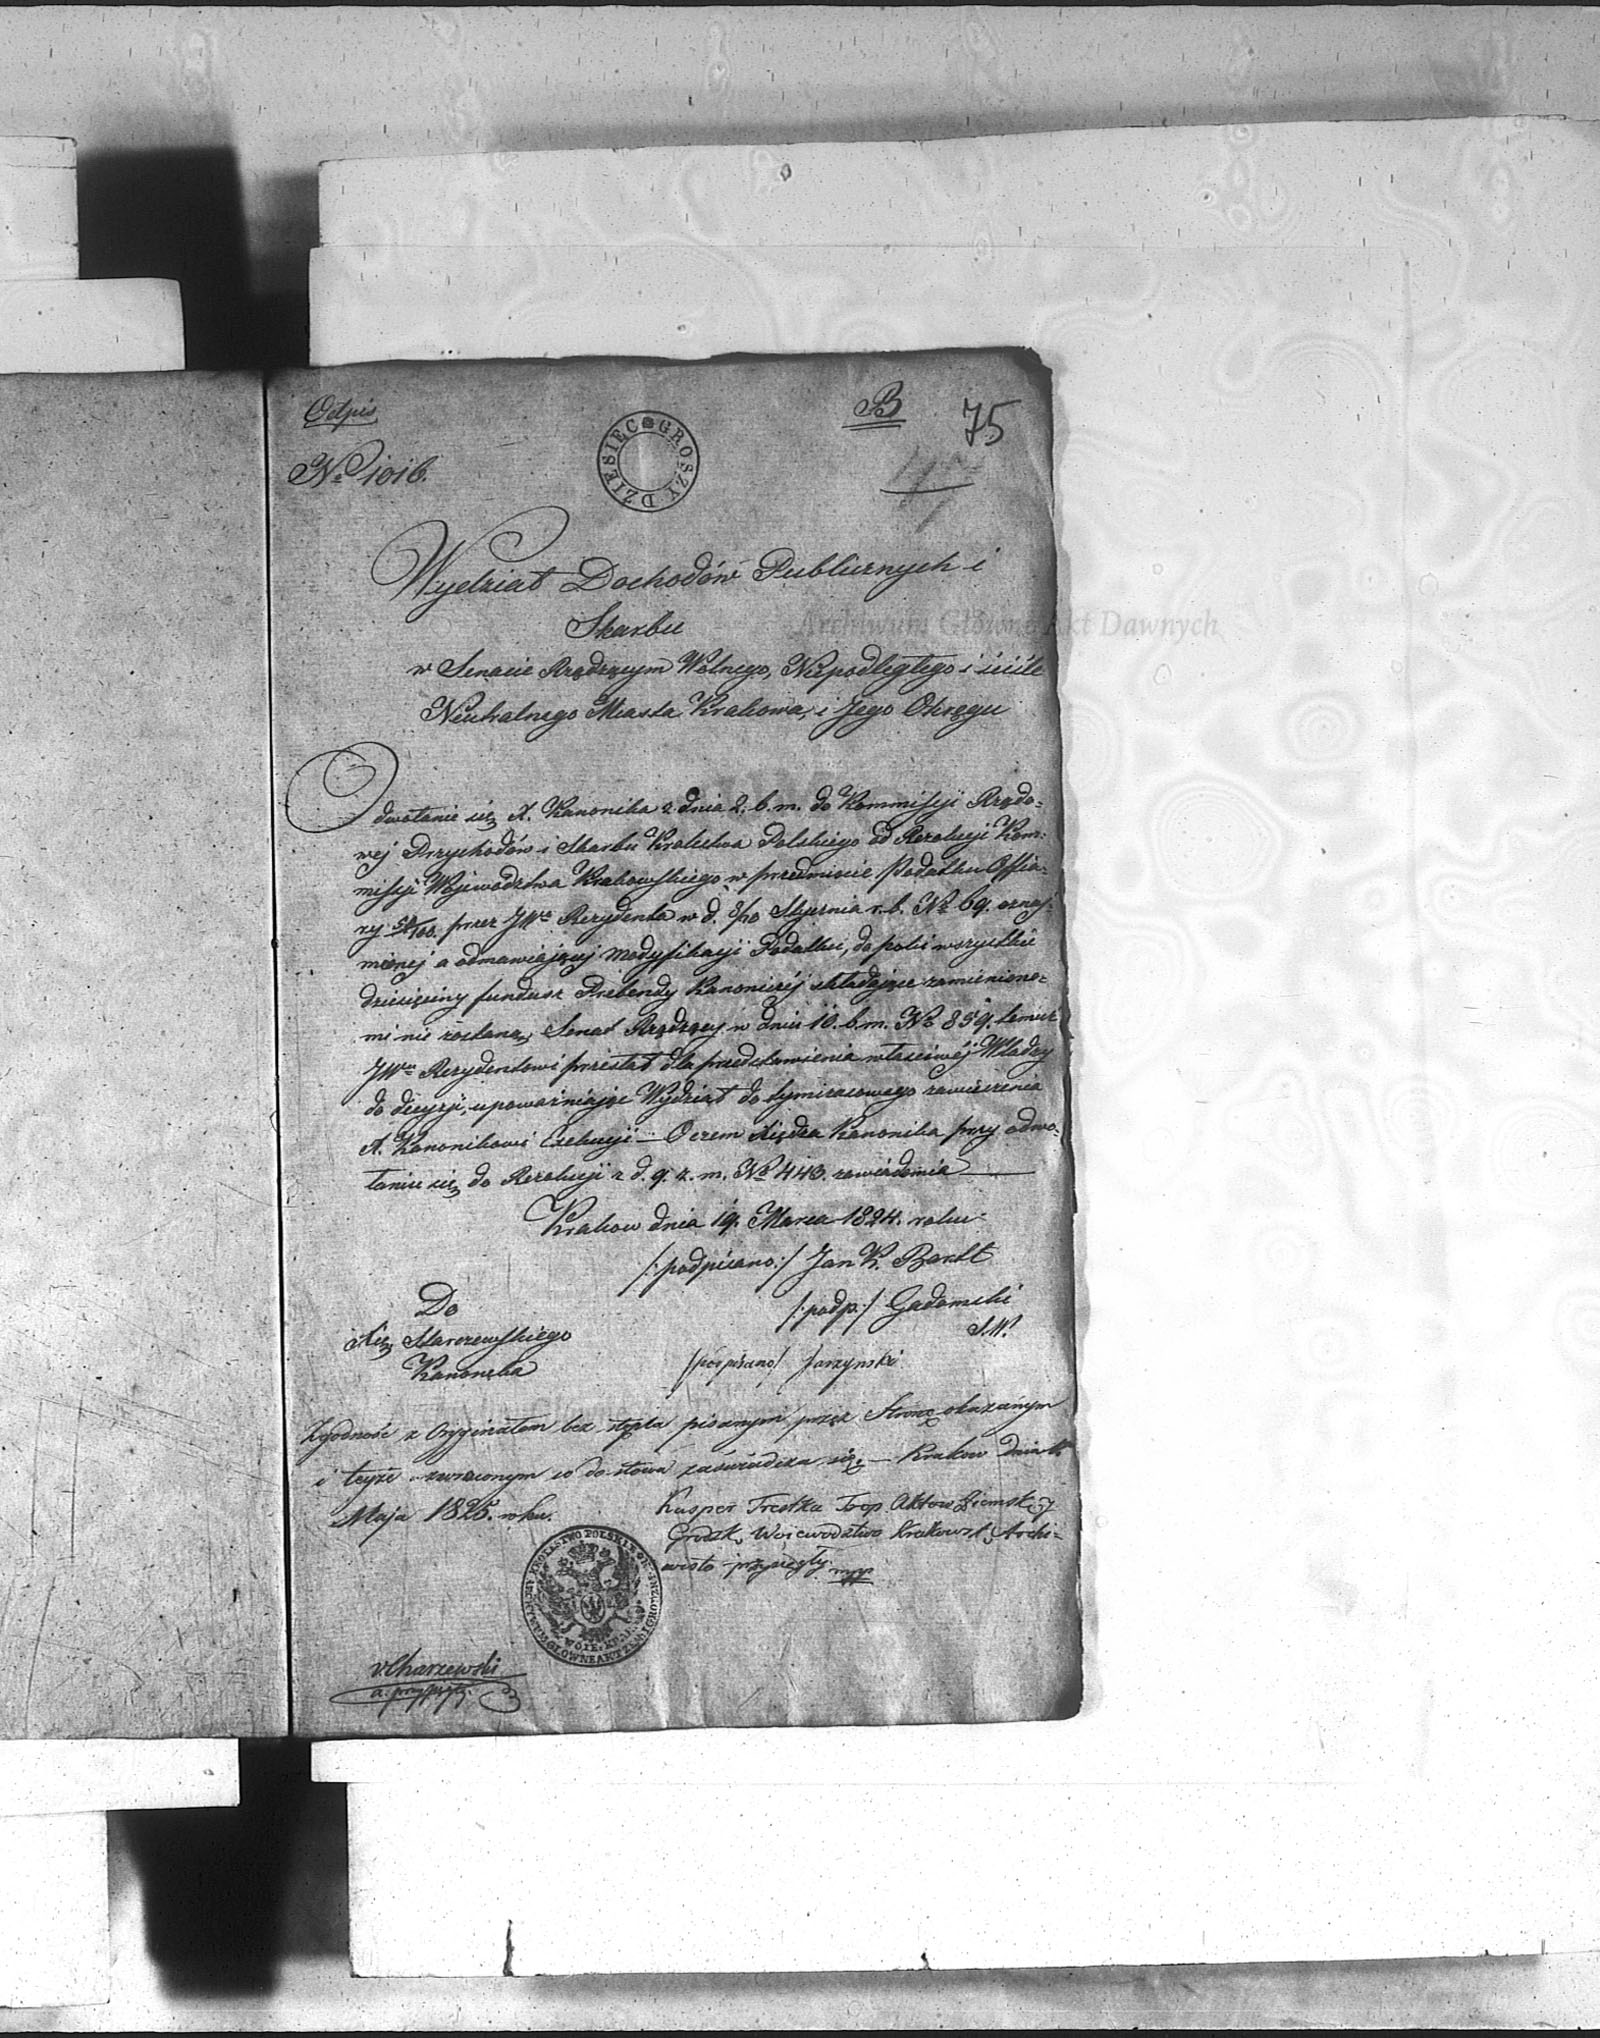 Odpis
B
75
No 1016.
DZIESIĘĆ GROSZY
Wydział Dochodów Publicznych i
Skarbu
Archiwum Główne Akt Dawnych
w Senacie Rządzącym Wolnego, Niepodległego i ściśle
Neutralnego Miasta Krakowa, i Jego Okręgu
Odwołanie się X. Kanonika z dnia 2. b. m. do Kommissyi Rządo-
wej Przychodów i Skarbu Królestwa Polskiego od Rezolucji Kom-
missyi Województwa Krakowskiego w przedmiocie Podatku Offia-
ry 24/100. przez JWo Rezydenta w d. 8/10 Stycznia r. b. No 69. oznaj-
mionej a odmawiającej modyfikacyi Podatku, do póki wszystkie
dziesięciny fundusz Prebendy Kanoniczéj składające zamienione-
mi nie zostaną, Senat Rządzący w dniu 10. b. m. No 859. temuż
JWu Rezydentowi przesłał dla przedstawienia właściwéj Władzy
do decyzji, upoważniając Wydział do tymczasowego zawieszenia
X. Kanonikowi Exekucji — O czem Xiędza Kanonika przy odwo-
łaniu się do Rezolucji z d. 9. z. m. No 443. zawiadamia
Krakow dnia 19. Marca 1824. roku
/:podpisano:/ Jan K. Bartl
Do
/:podp:/ Gadomski
S.W.
Xię Starczewskiego
Kanonika
/podpisano/ Jarzynski
Zgodność z Oryginałem bez stępla pisanym przez Stronę okazanym
i teyże zwróconym co do słowa zaświadcza się. — Krakow Dnia
Maja 1825. roku.
Kasper Trestka Archi-
Grodzk. Województwa Krakowsk.
wista przysięgły mpp
KRÓLESTWO POLSKIE
WOJE: KRAK:
v. Charzewski
a. przysięgły.